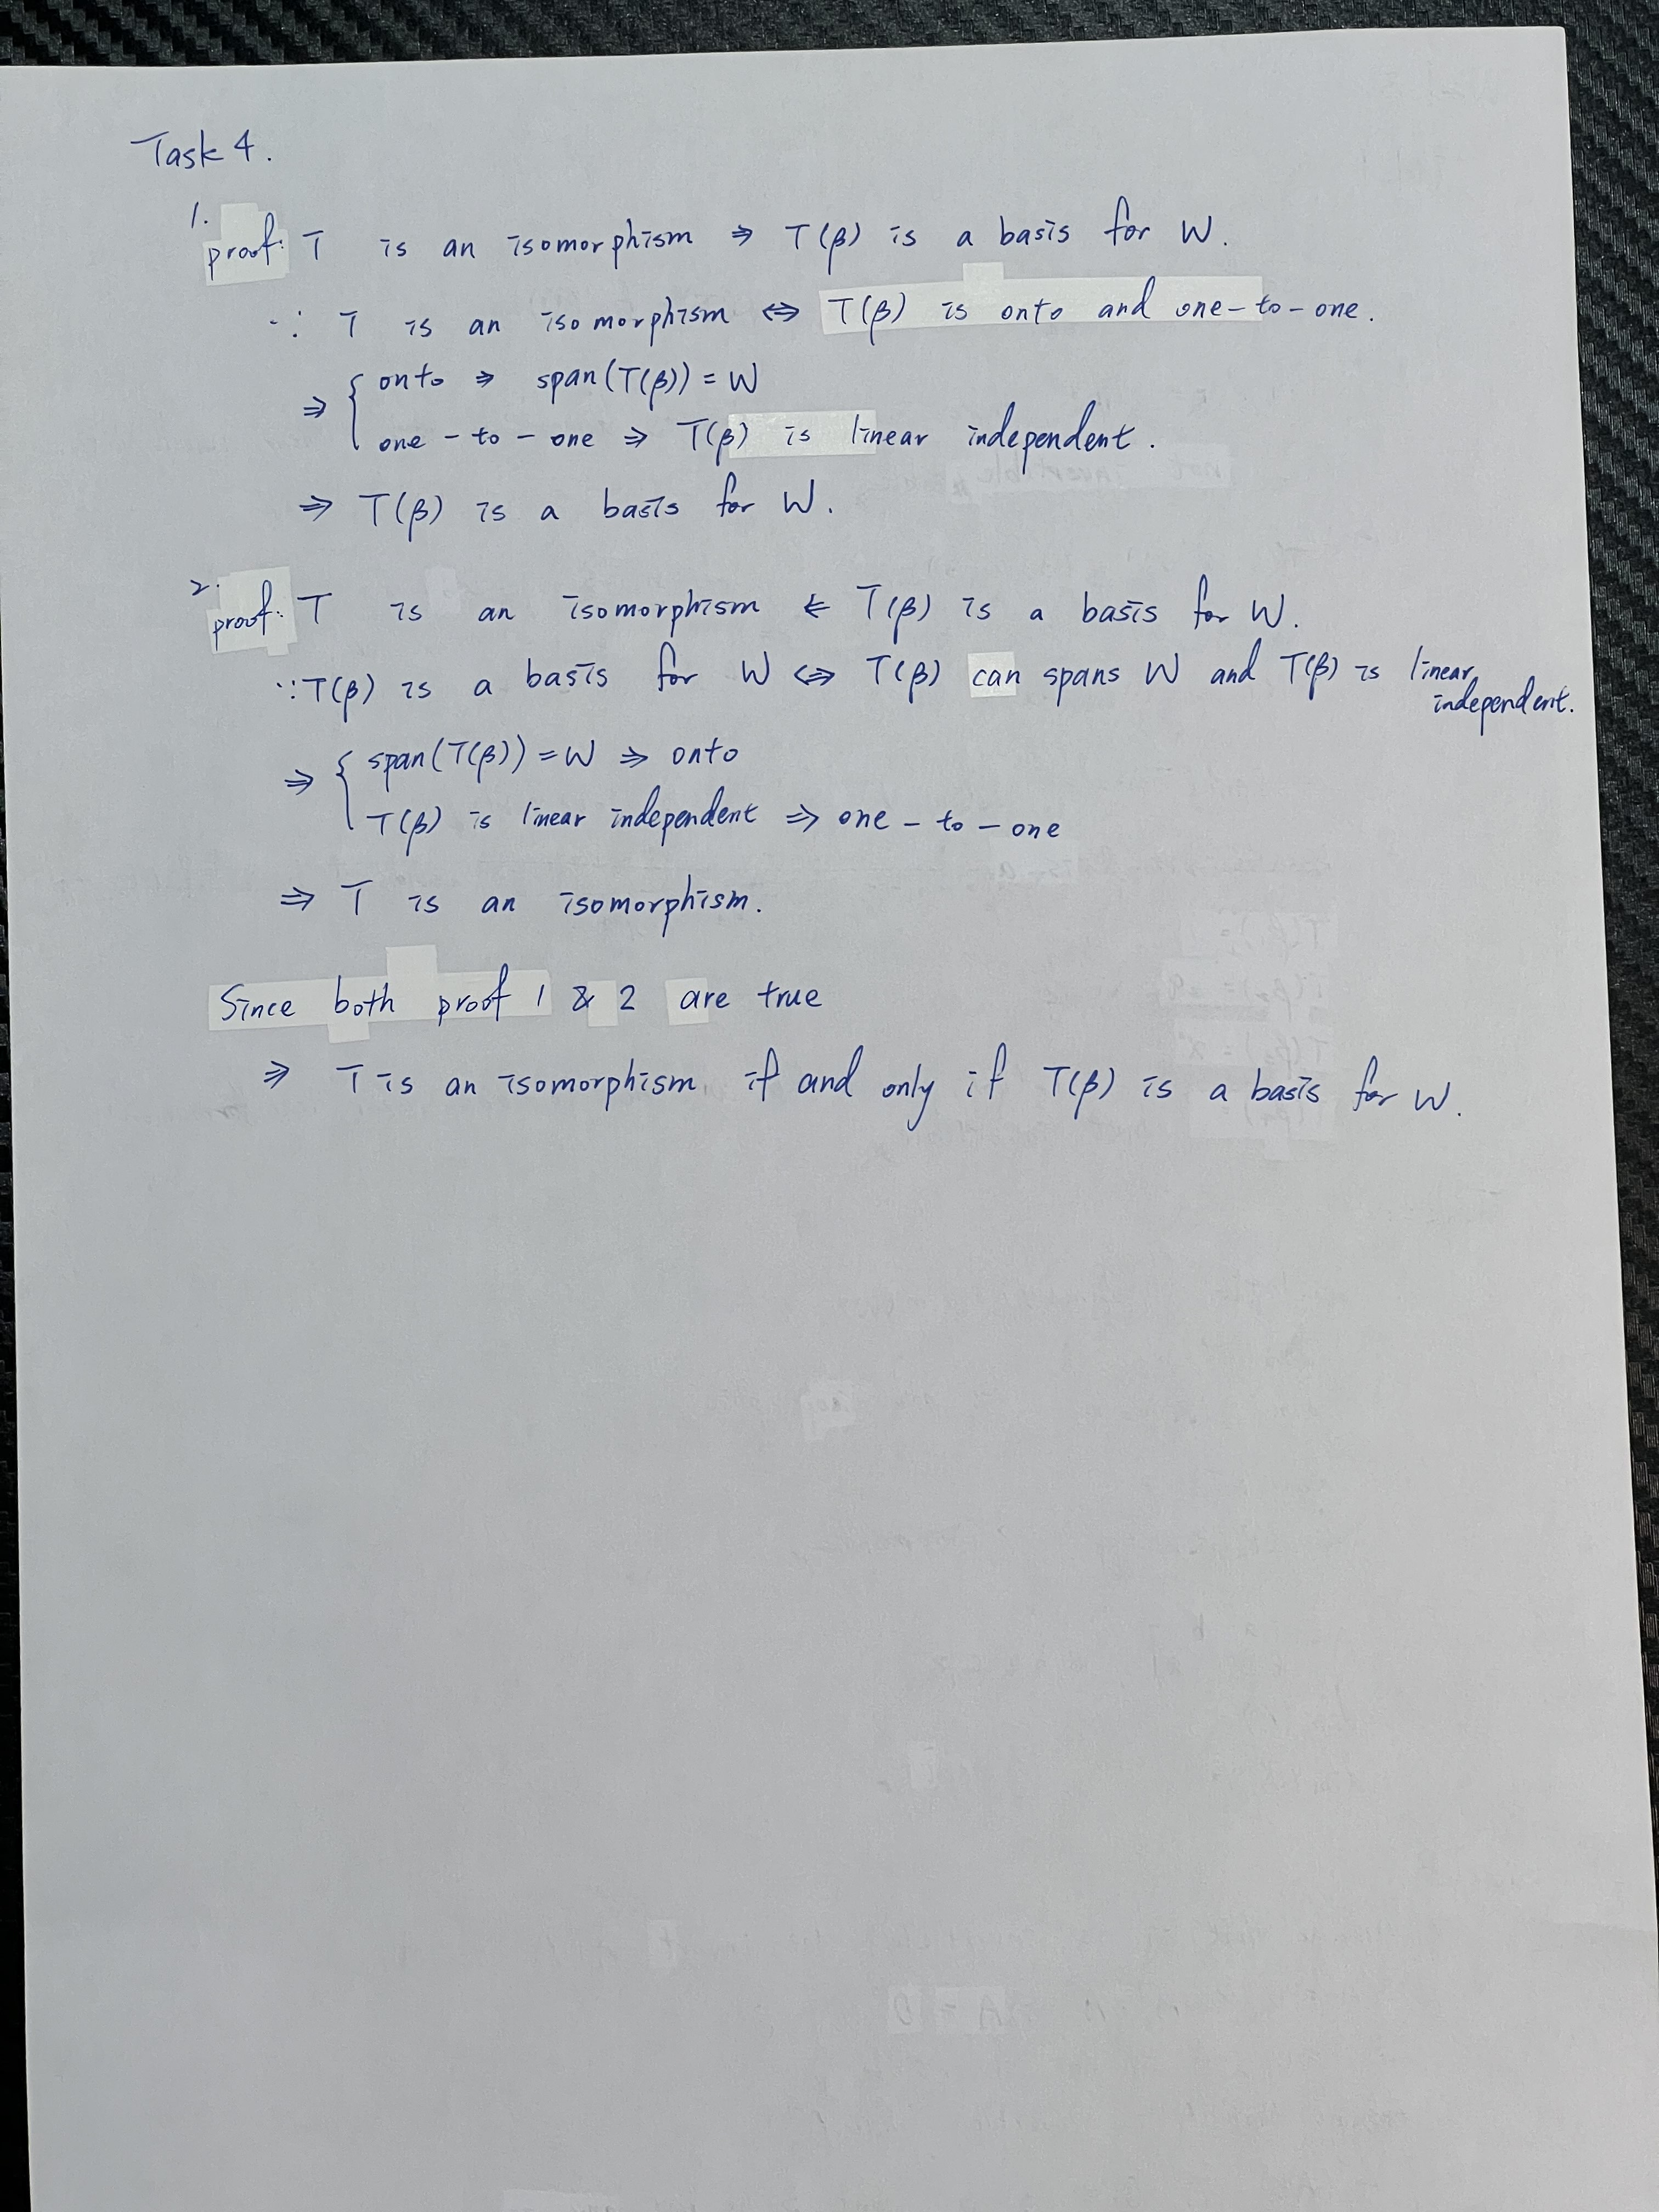 Task 4.
1.
proof: T is an isomorphism ⇒ T(β) is a basis for W.
∵ T is an isomorphism ⇔ T(β) is onto and one-to-one.
⇒ { onto ⇒ span(T(β)) = W
one-to-one ⇒ T(β) is linear independent.
⇒ T(β) is a basis for W.
2.
proof: T is an isomorphism ⇐ T(β) is a basis for W.
∵ T(β) is a basis for W ⇔ T(β) can spans W and T(β) is linear
independent.
⇒ { span(T(β)) = W ⇒ onto
T(β) is linear independent ⇒ one-to-one
⇒ T is an isomorphism.
Since both proof 1 & 2 are true
⇒ T is an isomorphism if and only if T(β) is a basis for W.